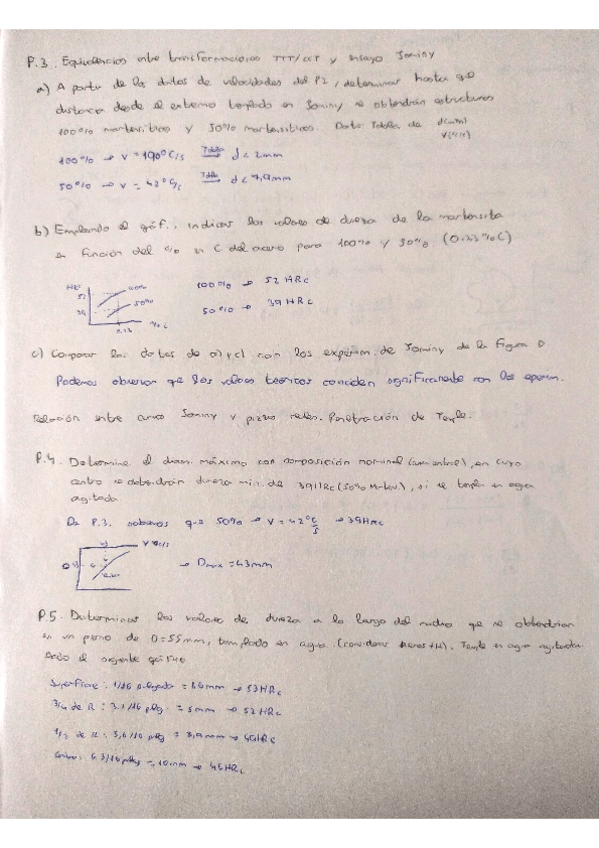 P.3. Equivalencias entre transformaciones TTT/CCT y ensayo Jominy
a) A partir de los datos de velocidades del P2, determinar hasta que
distancia desde el extremo templado en Jominy se obtendrán estructuras
100% martensíticas y 50% martensíticas. Dato: Tabla de d(mm)
V(ºC/s)
100% → V = 190ºC/s ⟹ d < 2mm
50% → V = 42ºC/s ⟹ d < 7,9mm
b) Empleando el gráf., indicar los valores de dureza de la martensita
en función del % en C del acero para 100% y 50% (0.33%C)
100% → 52 HRc
50% → 39 HRc
c) Comparar los datos de a) y c) con los experim. de Jominy de la figura D
Podemos observar que los valores teóricos coinciden significamente con los experim.
Relación entre curva Jominy y piezas reales. Penetración de Temple.
P.4. Determine el diam. máximo con composición nominal, en cuyo
centro se obtendrán dureza min. de 39HRc (50% Mart.), si se templa en agua
agitada.
De P.3. sabemos que 50% → V = 42ºC/s → 39HRc
V ºC/s
→ Dmax = 43mm
P.5. Determinar los valores de dureza a lo largo del radio que se obtendrían
en un perno de D=55mm, templado en agua. Temple en agua agitada.
Superficie: 1/16 pulgada = 1.6mm → 53HRc
3/4 de R: 3.1/16 plg = 5mm → 52 HRc
1/2 de R: 5,6/16 plg = 8,9mm → 49HRc
Centro: 6.3/16 plg = 10mm → 45HRc